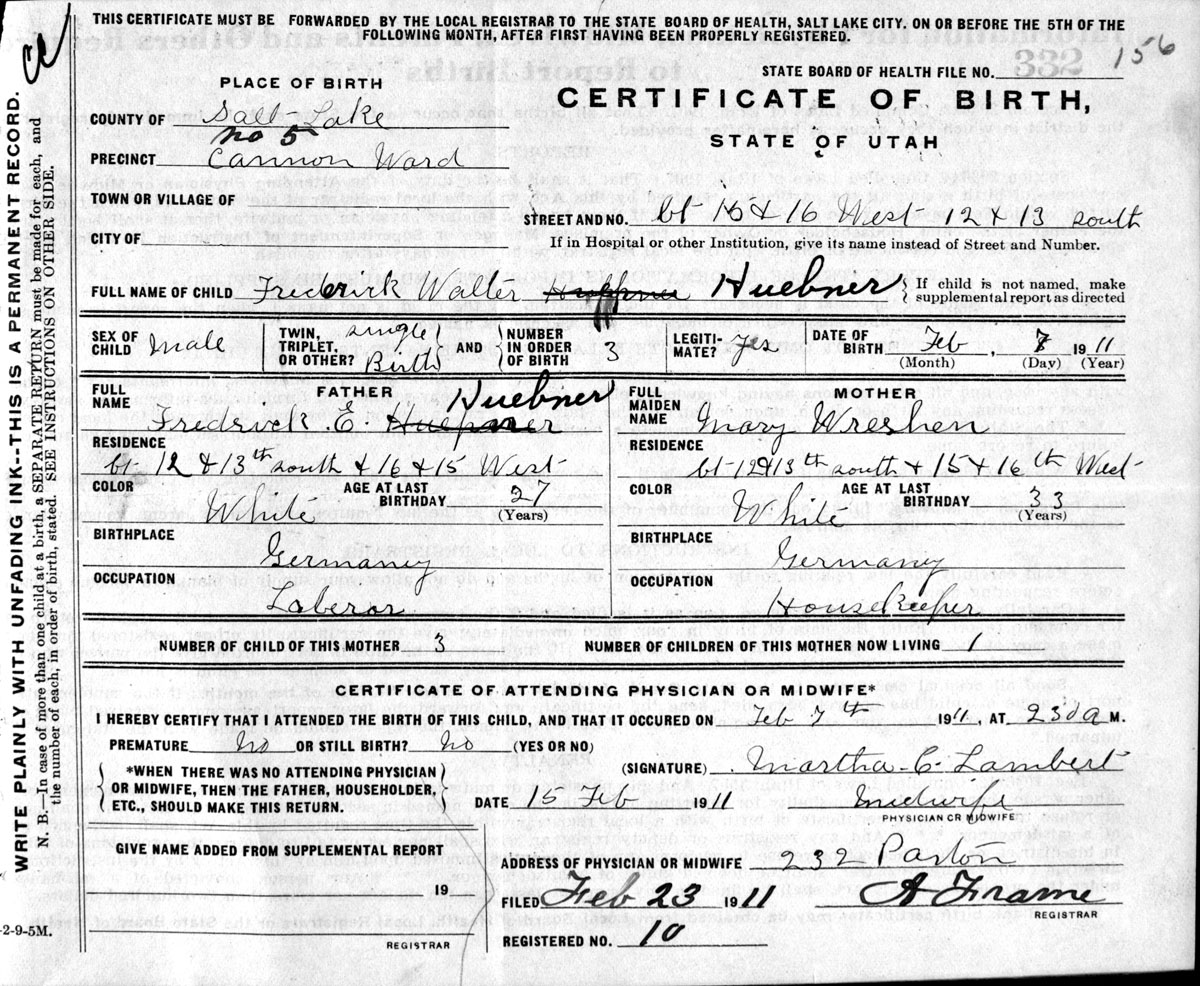 THIS CERTIFICATE MUST BE FORWARDED BY THE LOCAL REGISTRAR TO THE STATE BOARD OF HEALTH, SALT LAKE CITY. ON OR BEFORE THE 5TH OF THE
FOLLOWING MONTH, AFTER FIRST HAVING BEEN PROPERLY REGISTERED.
156
STATE BOARD OF HEALTH FILE NO.
PLACE OF BIRTH
CERTIFICATE OF BIRTH,
STATE OF UTAH
COUNTY OF Salt Lake
No 5
PRECINCT Cannon Ward
TOWN OR VILLAGE OF
STREET AND NO. bt 15 & 16 West 12 & 13 south
CITY OF
If in Hospital or other Institution, give its name instead of Street and Number.
FULL NAME OF CHILD Frederick Walter Huebner
If child is not named, make
supplemental report as directed
SEX OF CHILD Male
TWIN, TRIPLET, OR OTHER? single Birth
AND NUMBER IN ORDER OF BIRTH 3
LEGITI-MATE? yes
DATE OF BIRTH Feb, 7 1911
(Month) (Day) (Year)
FULL NAME FATHER Huebner
Fredrick E.
FULL MAIDEN NAME MOTHER
Mary Wreshen
RESIDENCE
bt 12 & 13th south & 16 & 15 West
RESIDENCE
bt 12 & 13th south & 15 & 16th West
COLOR White AGE AT LAST BIRTHDAY 27 (Years)
COLOR White AGE AT LAST BIRTHDAY 33 (Years)
BIRTHPLACE Germany
BIRTHPLACE Germany
OCCUPATION Laberor
OCCUPATION HouseKeeper
NUMBER OF CHILD OF THIS MOTHER 3
NUMBER OF CHILDREN OF THIS MOTHER NOW LIVING 1
CERTIFICATE OF ATTENDING PHYSICIAN OR MIDWIFE*
I HEREBY CERTIFY THAT I ATTENDED THE BIRTH OF THIS CHILD, AND THAT IT OCCURED ON Feb 7th 1911 AT 230 a M.
PREMATURE No OR STILL BIRTH? No (YES OR NO)
*WHEN THERE WAS NO ATTENDING PHYSICIAN
OR MIDWIFE, THEN THE FATHER, HOUSEHOLDER,
ETC., SHOULD MAKE THIS RETURN.
(SIGNATURE) Martha C Lambert
DATE 15 Feb 1911 Midwife
PHYSICIAN OR MIDWIFE
GIVE NAME ADDED FROM SUPPLEMENTAL REPORT
19
REGISTRAR
ADDRESS OF PHYSICIAN OR MIDWIFE 232 Paxton
FILED Feb 23 1911 A Frame
REGISTRAR
REGISTERED NO. 10
-2-9-5M.
WRITE PLAINLY WITH UNFADING INK--THIS IS A PERMANENT RECORD.
N. B.—In case of more than one child at a birth, a SEPARATE RETURN must be made for each, and
the number of each, in order of birth, stated. SEE INSTRUCTIONS ON OTHER SIDE.